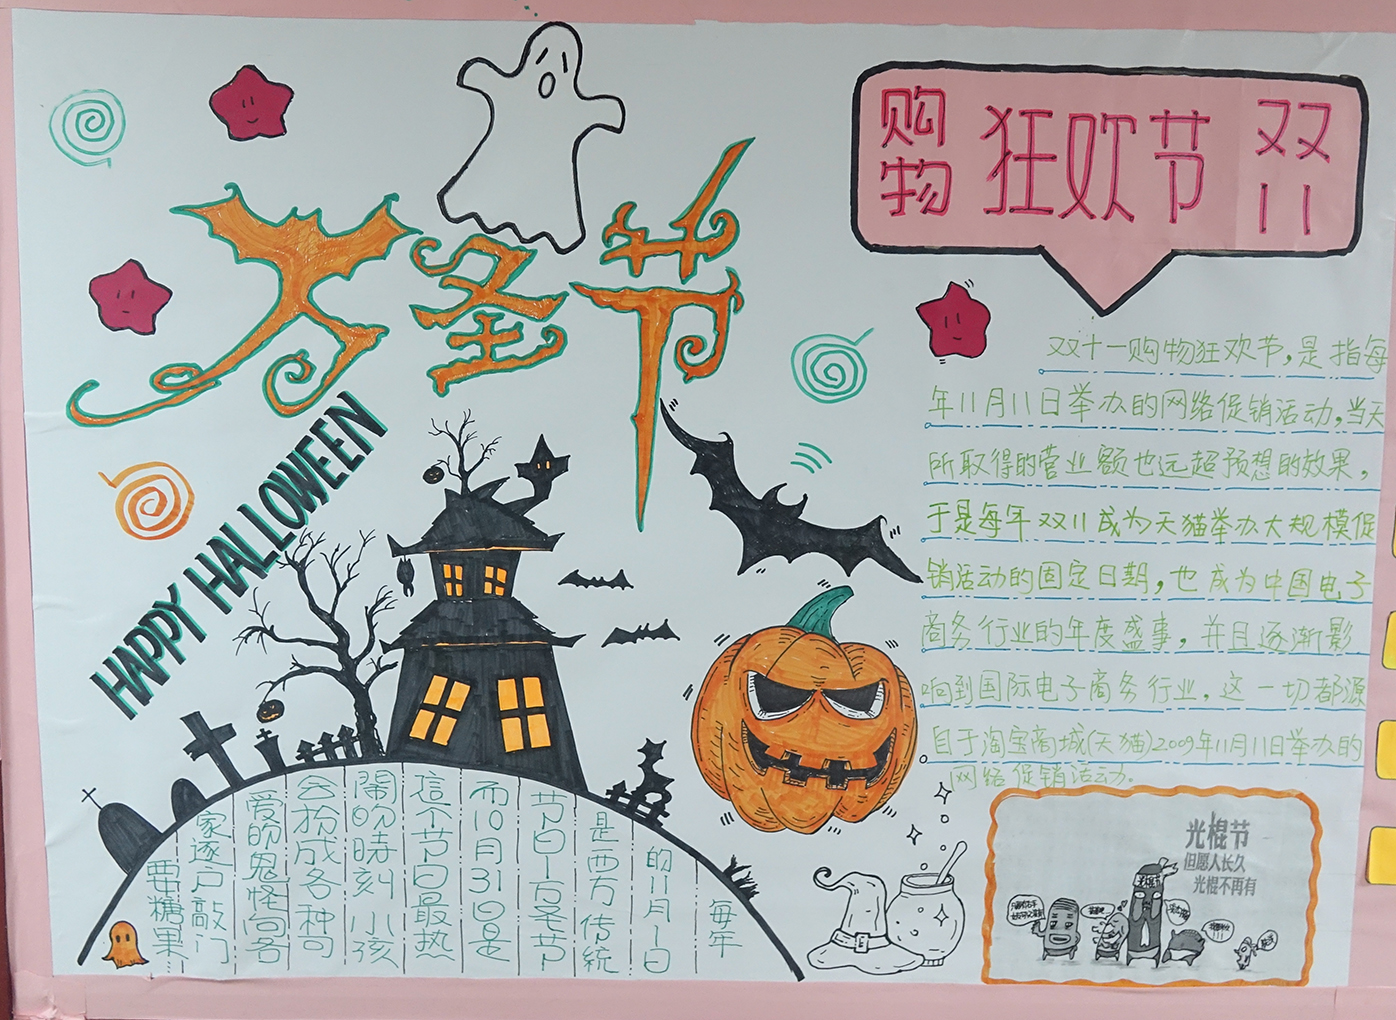 万圣节
HAPPY HALLOWEEN
每年
的11月1日
是西方传統
节日—万圣节
而10月31日是
這个节日最热
鬧的時刻小孩
会扮成各种可
爱的鬼怪向各
家逐户敲门
要糖果…
购物 狂欢节 双11
双十一购物狂欢节,是指每
年11月11日举办的网络促销活动,当天
所取得的营业额也远超预想的效果,
于是每年双11成为天猫举办大规模促
销活动的固定日期,也成为中国电子
商务行业的年度盛事,并且逐渐影
响到国际电子商务行业,这一切都源
自于淘宝商城(天猫)2009年11月11日举办的
网络促销活动。
光棍节
但愿人长久
光棍不再有